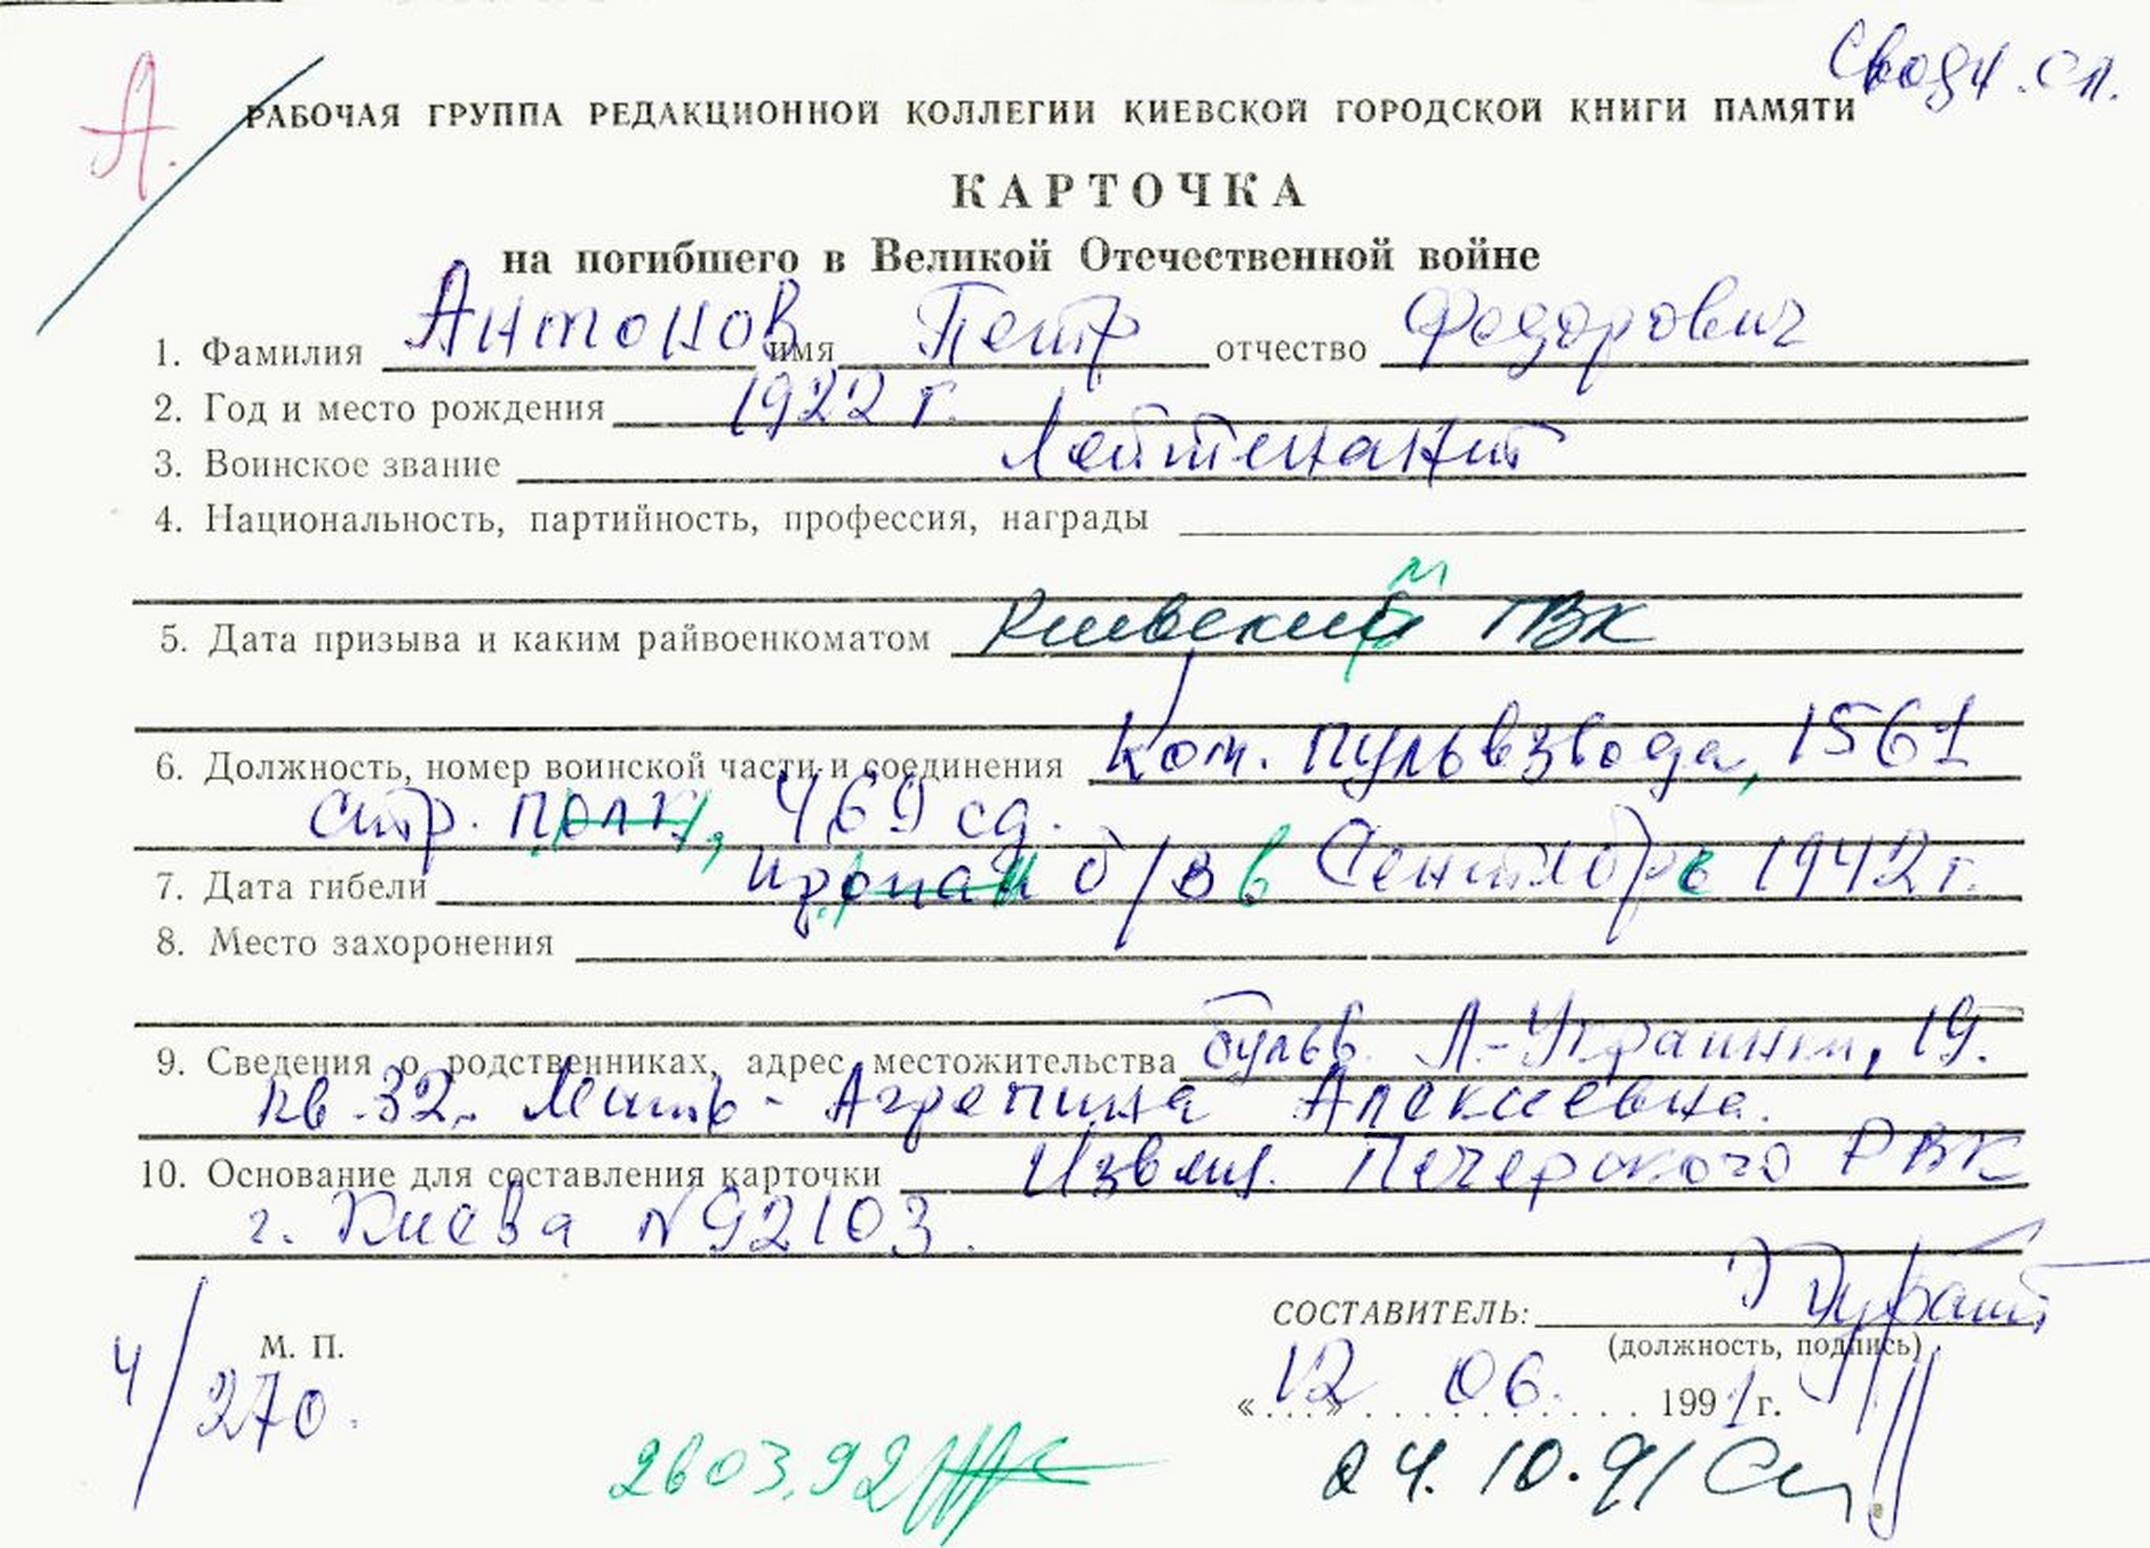 Сводн. сп.
А.
РАБОЧАЯ ГРУППА РЕДАКЦИОННОЙ КОЛЛЕГИИ КИЕВСКОЙ ГОРОДСКОЙ КНИГИ ПАМЯТИ
КАРТОЧКА
на погибшего в Великой Отечественной войне
1. Фамилия Антонов имя Петр отчество Федорович
2. Год и место рождения 1922 г.
3. Воинское звание Лейтенант
4. Национальность, партийность, профессия, награды
м
5. Дата призыва и каким райвоенкоматом Киевский ГВК
6. Должность, номер воинской части и соединения Ком. пульвзвода, 1561
стр. полк, 469 сд.
7. Дата гибели пропал б/в в Сентябре 1942 г.
8. Место захоронения
9. Сведения о родственниках, адрес местожительства бульв. Л-Украинки, 19.
кв. 32. Мать - Агрепина Алексеевна.
10. Основание для составления карточки Извещ. Печерского РВК
г. Киева N 92103.
СОСТАВИТЕЛЬ:
(должность, подпись)
М. П.
4/270.
«12» 06. 1991 г.
24.10.91
2603.92